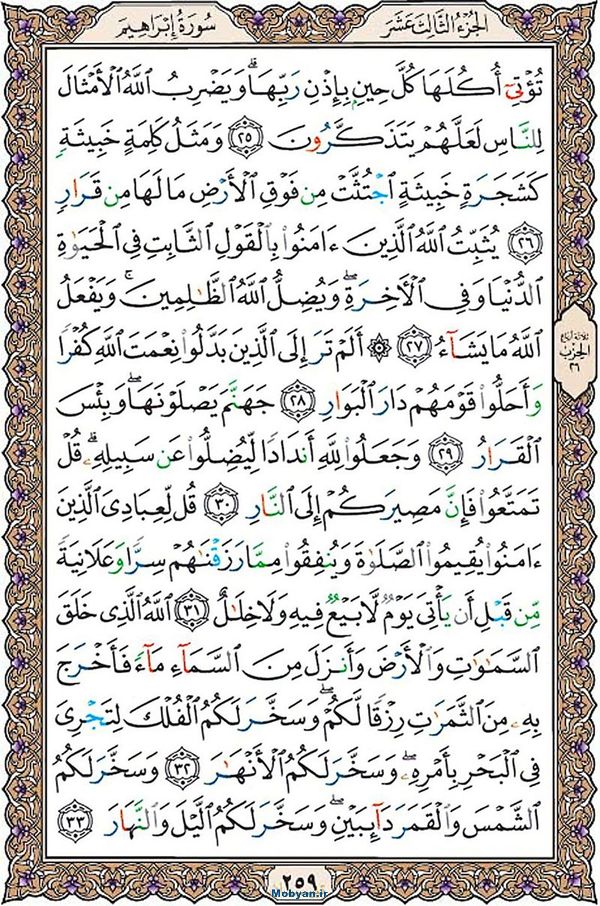 الجُزءُ الثَّالِثَ عَشَرَ
سُورَةُ إِبۡرَاهِيمَ
تُؤۡتِيٓ أُكُلَهَا كُلَّ حِينِۭ بِإِذۡنِ رَبِّهَاۗ وَيَضۡرِبُ ٱللَّهُ ٱلۡأَمۡثَالَ
لِلنَّاسِ لَعَلَّهُمۡ يَتَذَكَّرُونَ ٢٥ وَمَثَلُ كَلِمَةٍ خَبِيثَةٖ
كَشَجَرَةٍ خَبِيثَةٍ ٱجۡتُثَّتۡ مِن فَوۡقِ ٱلۡأَرۡضِ مَا لَهَا مِن قَرَارٖ
٢٦ يُثَبِّتُ ٱللَّهُ ٱلَّذِينَ ءَامَنُواْ بِٱلۡقَوۡلِ ٱلثَّابِتِ فِي ٱلۡحَيَوٰةِ
ٱلدُّنۡيَا وَفِي ٱلۡأٓخِرَةِۖ وَيُضِلُّ ٱللَّهُ ٱلظَّٰلِمِينَۚ وَيَفۡعَلُ
ٱللَّهُ مَا يَشَآءُ ٢٧ ۞ أَلَمۡ تَرَ إِلَى ٱلَّذِينَ بَدَّلُواْ نِعۡمَتَ ٱللَّهِ كُفۡرٗا
وَأَحَلُّواْ قَوۡمَهُمۡ دَارَ ٱلۡبَوَارِ ٢٨ جَهَنَّمَ يَصۡلَوۡنَهَاۖ وَبِئۡسَ
ٱلۡقَرَارُ ٢٩ وَجَعَلُواْ لِلَّهِ أَندَادٗا لِّيُضِلُّواْ عَن سَبِيلِهِۦۗ قُلۡ
تَمَتَّعُواْ فَإِنَّ مَصِيرَكُمۡ إِلَى ٱلنَّارِ ٣٠ قُل لِّعِبَادِيَ ٱلَّذِينَ
ءَامَنُواْ يُقِيمُواْ ٱلصَّلَوٰةَ وَيُنفِقُواْ مِمَّا رَزَقۡنَٰهُمۡ سِرّٗا وَعَلَانِيَةٗ
مِّن قَبۡلِ أَن يَأۡتِيَ يَوۡمٞ لَّا بَيۡعٞ فِيهِ وَلَا خِلَٰلٌ ٣١ ٱللَّهُ ٱلَّذِي خَلَقَ
ٱلسَّمَٰوَٰتِ وَٱلۡأَرۡضَ وَأَنزَلَ مِنَ ٱلسَّمَآءِ مَآءٗ فَأَخۡرَجَ
بِهِۦ مِنَ ٱلثَّمَرَٰتِ رِزۡقٗا لَّكُمۡۖ وَسَخَّرَ لَكُمُ ٱلۡفُلۡكَ لِتَجۡرِيَ
فِي ٱلۡبَحۡرِ بِأَمۡرِهِۦۖ وَسَخَّرَ لَكُمُ ٱلۡأَنۡهَٰرَ ٣٢ وَسَخَّرَ لَكُمُ
ٱلشَّمۡسَ وَٱلۡقَمَرَ دَآئِبَيۡنِۖ وَسَخَّرَ لَكُمُ ٱلَّيۡلَ وَٱلنَّهَارَ ٣٣
ثلاثة أرباع
الحزب
٢٦
٢٥٩
Mobyan.ir